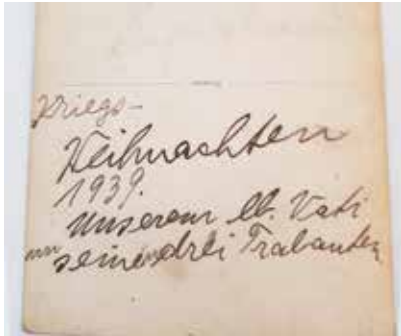 Kriegs-
Weihnachten
1939.
Unserem lb. Vati
seine drei Trabanten